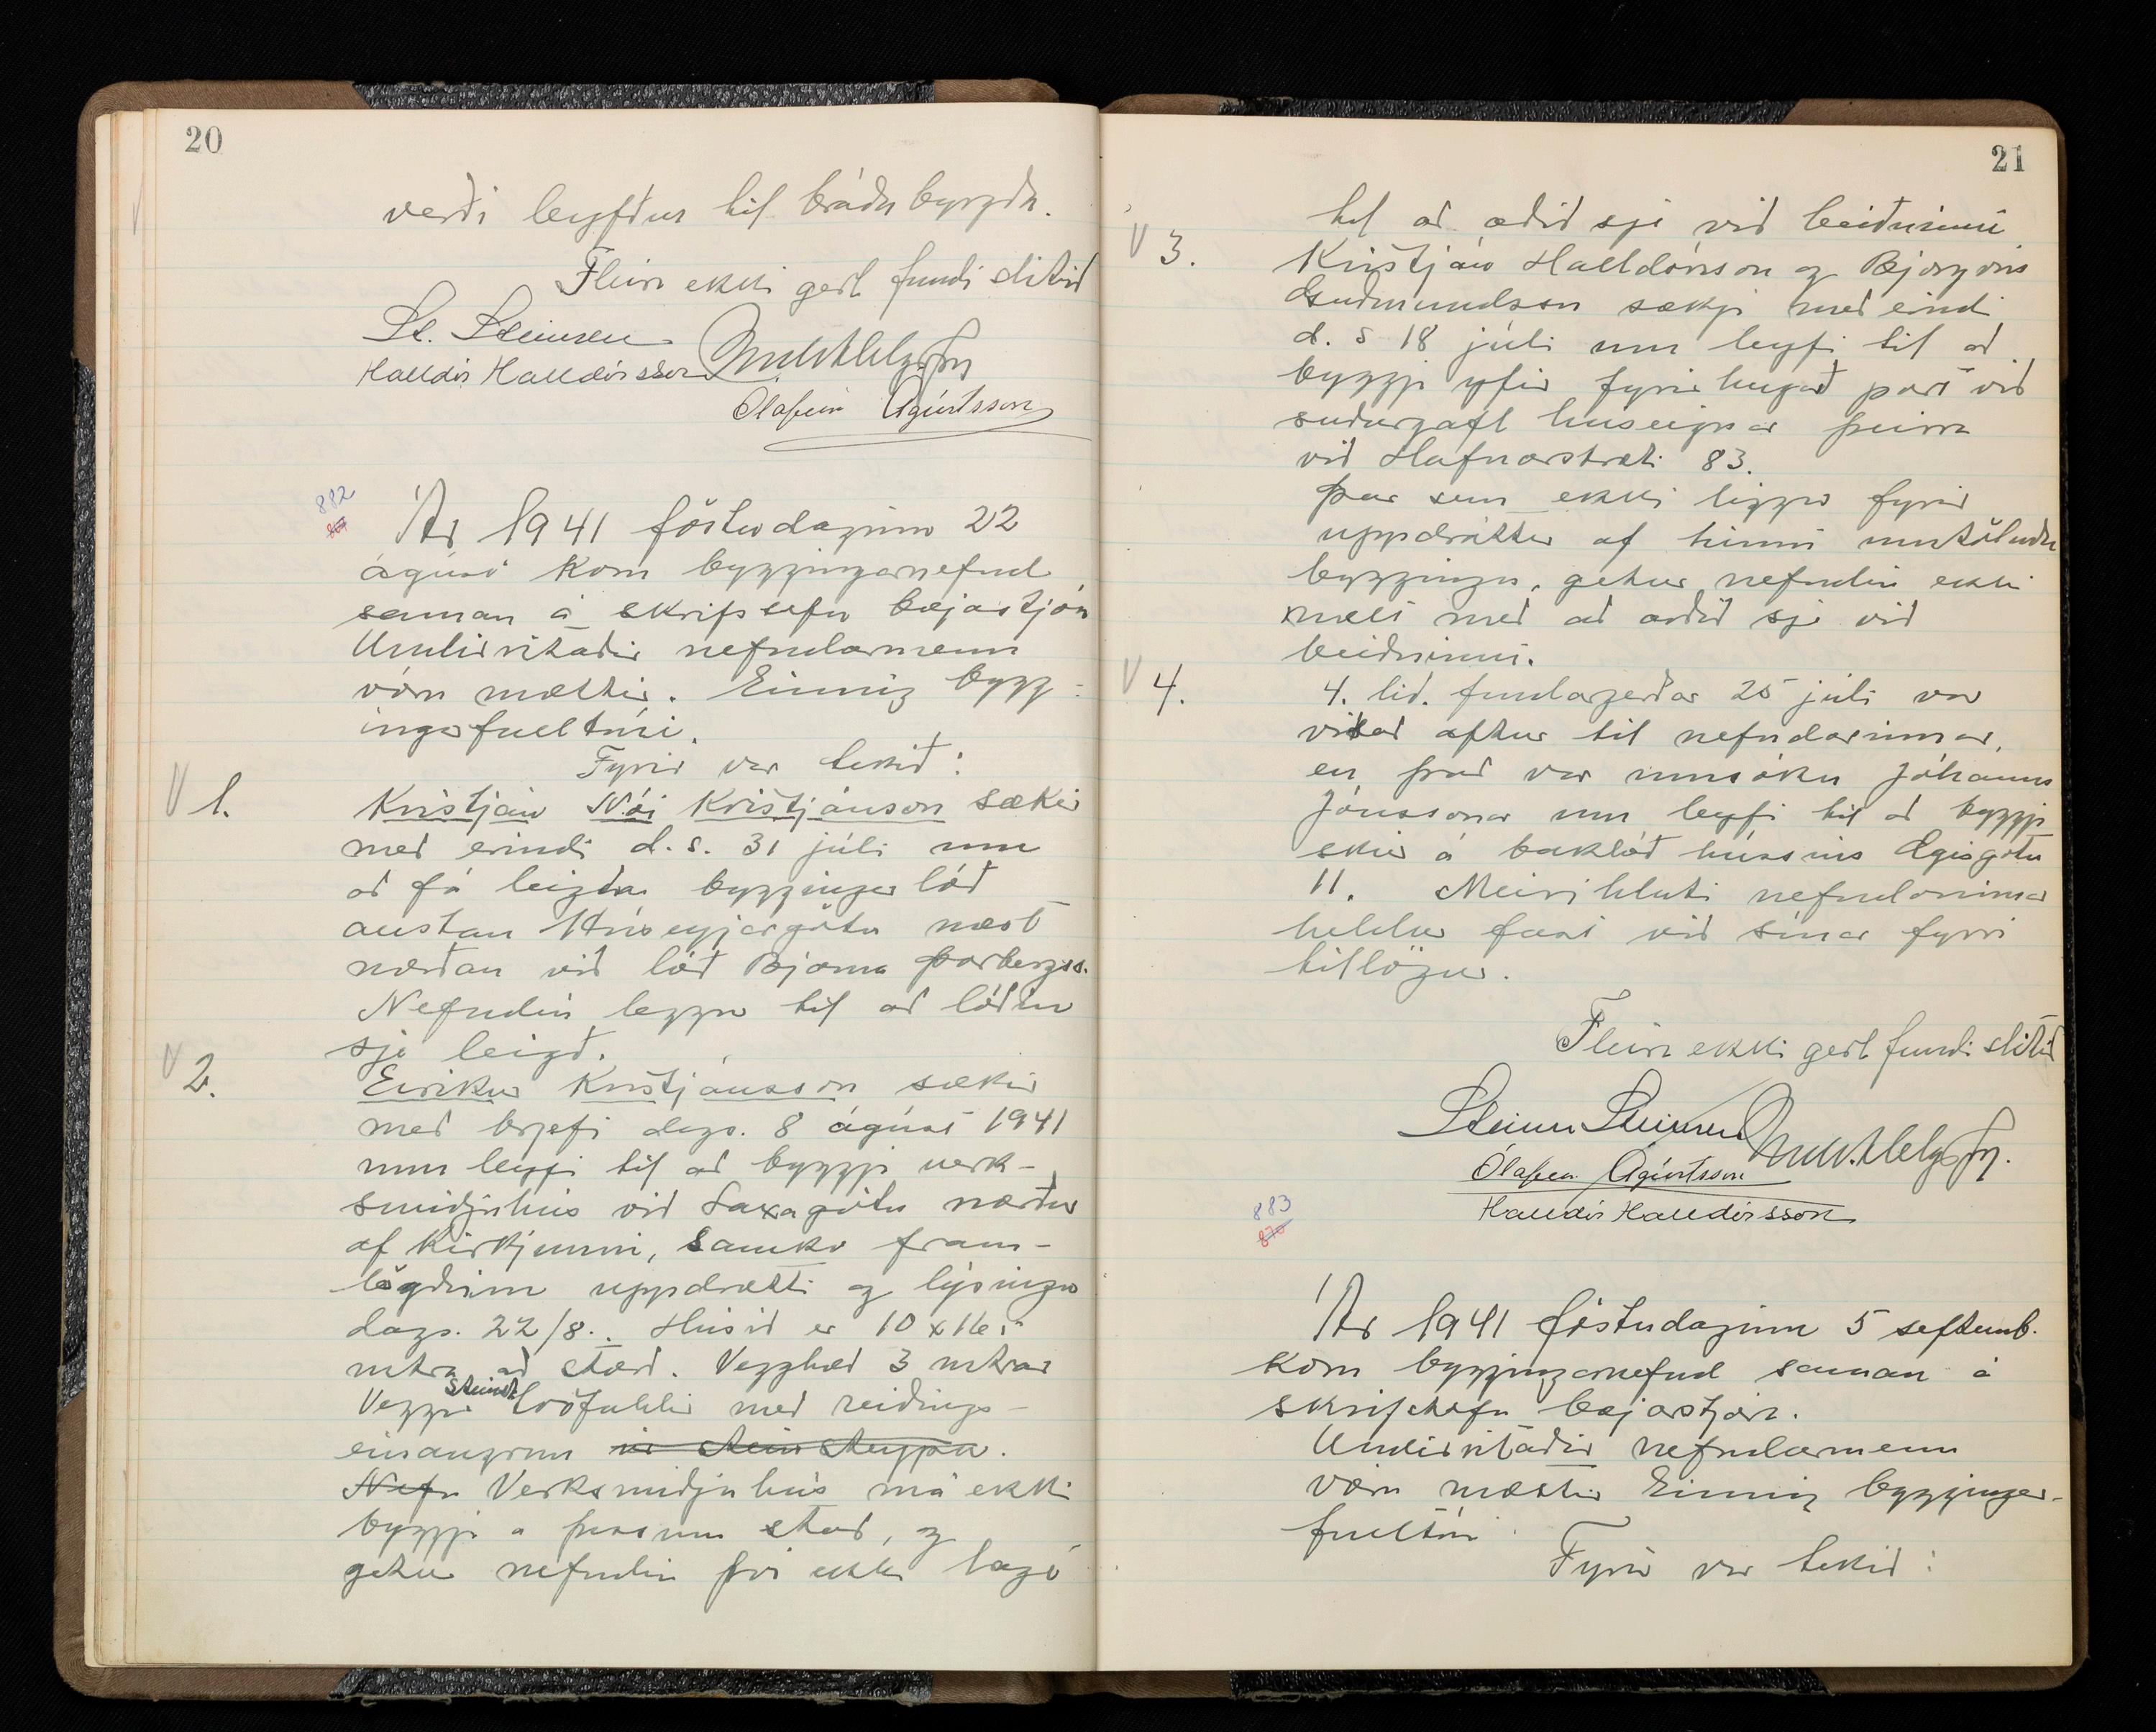 20
verði leyfður til bráðabyrgða.
Fleira ekki gert fundi slitið
St. Steinsen
Halldór Halldórsson
Ólafur Ágústsson
882
Ár 1941 föstudaginn 22
ágúst kom byggingarnefnd
saman á skrifstofu bæjarstjóra
Undirritaðir nefndarmenn
vóru mættir. Einnig bygg-
ingafulltrúi.
Fyrir var tekið:
V 1. Kristján Nói Kristjánsson sækir
með erindi d.s. 31 júli um
að fá leigða byggingarlóð
austan Hríseyjargötu næst
norðan við lóð Bjarna Þorbergss.
Nefndin leggur til að lóðin
sje leigð.
V 2. Eiríkur Kristjánsson sækir
með brjefi dags. 8 ágúst 1941
um leyfi til að byggja verk-
smiðjuhús við Laxagötu norður
af kirkjunni, samkv fram-
lögðum uppdrætti og lýsingu
dags. 22/8. Húsið er 10 x 16,5
mtra að stærð. Vegghæð 3 mtrar
Veggir steinst. tvöfaldir með reiðings-
einangrun úr steinsteypu.
Nefn Verksmiðjuhús má ekki
byggja á þessum stað, og
getur nefndin því ekki lagt
21
til að orðið sje við beiðninni
V 3. Kristján Halldórsson og Björgvin
Guðmundsson sækja með erindi
d.s 18 júli um leyfi til að
byggja yfir fyrirhugað port við
suðurgafl húseignar þeirra
við Hafnarstræti 83.
Þar sem ekki liggur fyrir
uppdráttur af hinni umtöluðu
byggingu, getur nefndin ekki
mælt með að orðið sje við
beiðninni.
V 4. 4. lið. fundargerðar 25 júli var
vísað aftur til nefndarinnar,
en það var umsókn Jóhanns
Jónssonar um leyfi til að byggja
skúr á baklóð hússins Ægisgötu
11. Meirihluti nefndarinnar
heldur fast við sínar fyrri
tillögur.
Fleira ekki gert fundi slitið
Steinn Steinsen
Ólafur Ágústsson
Halldór Halldórsson
883
Ár 1941 föstudaginn 5 septemb.
kom byggingarnefnd saman á
skrifstofu bæjarstjóra.
Undirritaðir nefndarmenn
vóru mættir Einnig byggingar-
fulltrúi.
Fyrir var tekið: